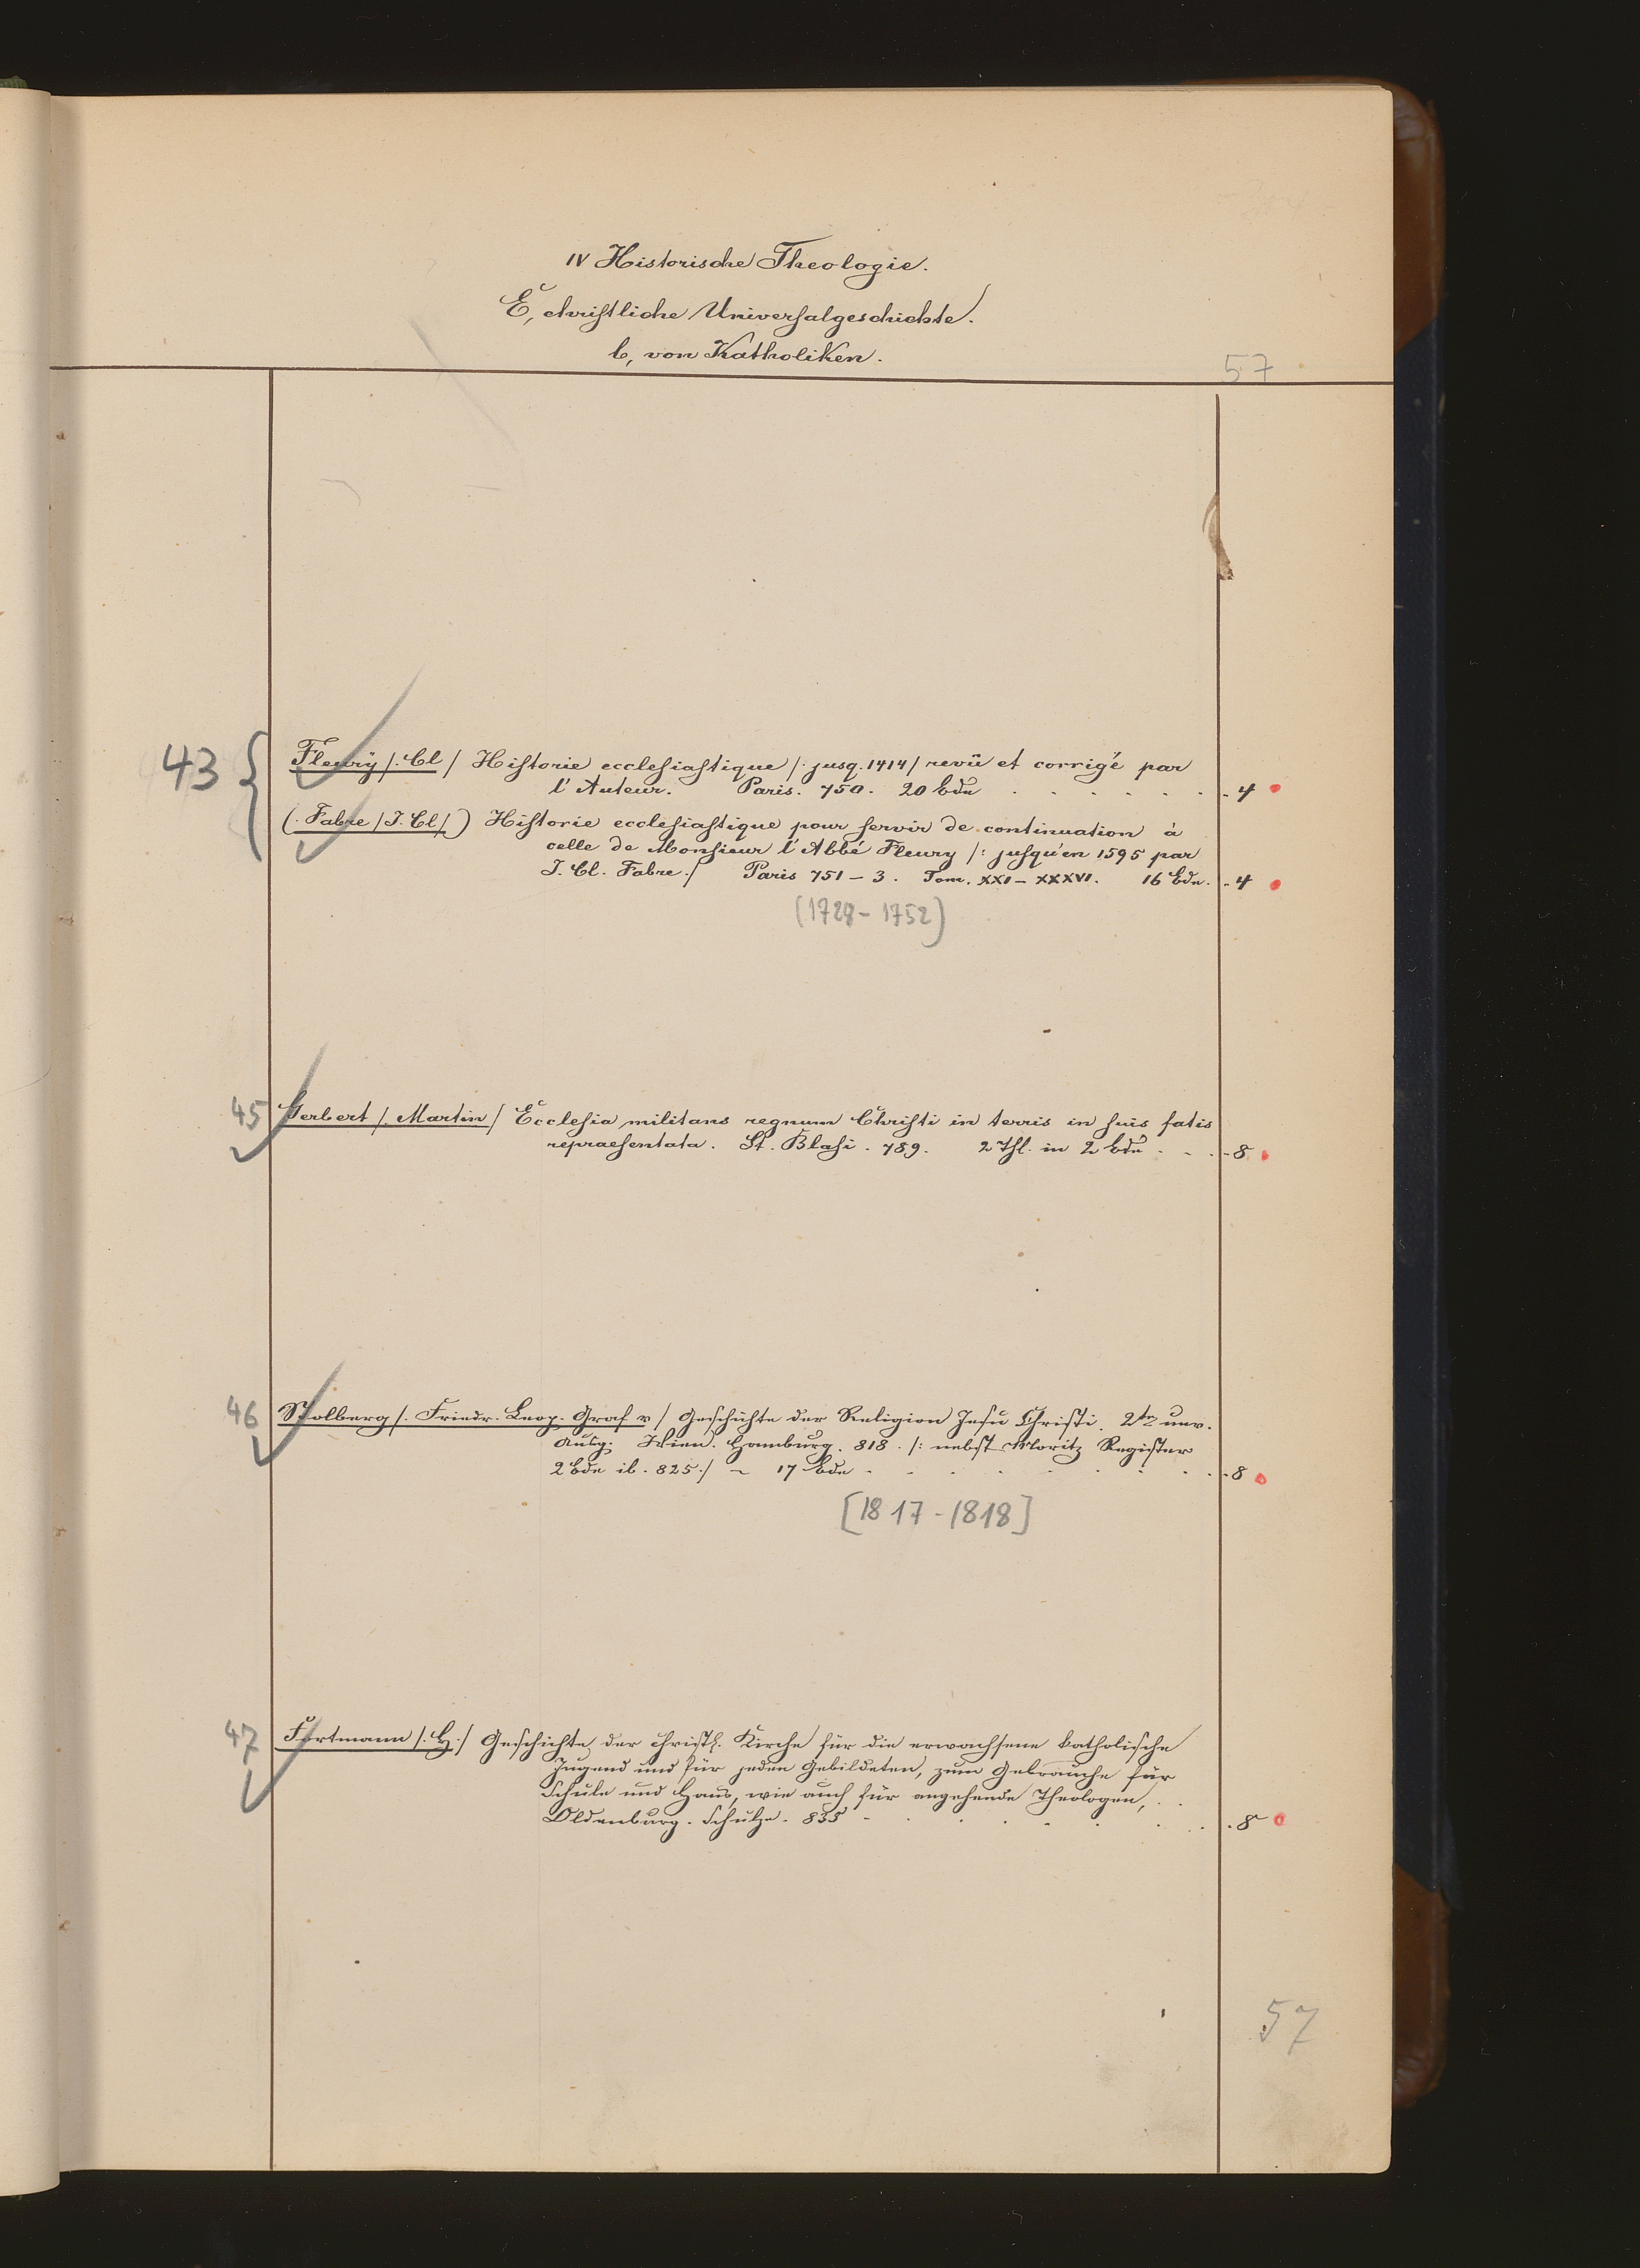 IV Historische Theologie.
E, christliche Universalgeschichte.
b, von Katholiken.
57
43
Fleury /. Cl / Historie ecclesiastique /: jusq. 1414 / revû et corrigé par
l'Auteur. Paris. 750. 20 Bde . . . . . . . 4
(. Fabre / J. Cl /.) Historie ecclesiastique pour servir de continuation à
celle de Monsieur l'Abbé Fleury /: jusqu'en 1595 par
J. Cl. Fabre ./ Paris 751 – 3. Tom. XXI – XXXVI. 16 Bde. . 4
(1728 – 1752)
45 Gerbert /. Martin / Ecclesia militans regnum Christi in terris in suis fatis
repraesentata. St. Blasi. 789. 2 Thl. in 2 Bde . . . 8
46 Stolberg /. Friedr. Leop. Graf v / Geschichte der Religion Jesu Christi. 2te unv.
Ausg. Wien. Hamburg. 818. /: nebst Moritz Register
2 Bde ib. 825 ./ 17 Bde . . . . . . . . 8
[1817 - 1818]
47 Fortmann /. H ./ Geschichte der christl. Kirche für die erwachsene katholische
Jugend und für jeden Gebildeten, zum Gebrauche für
Schule und Haus, wie auch für angehende Theologen, . .
Oldenburg. Schulze. 835 . . . . . . . . 8
57